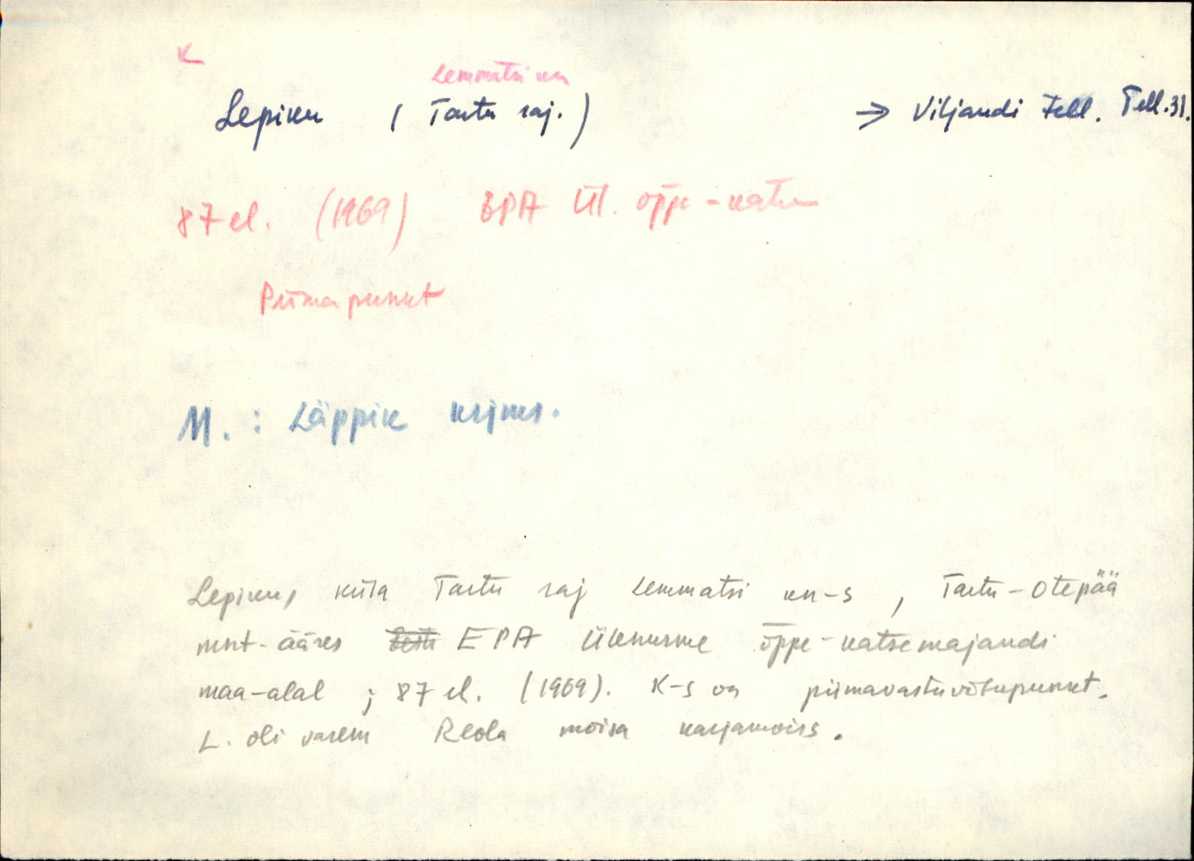 K
Lemmatsi kn
Lepiku (Tartu raj.) → Viljandi Tell. Tell.31.
87 el. (1969) EPA Ül. õppe-katse
Piimapunkt
M. : Läppik krjms.
Lepiku, küla Tartu raj Lemmatsi kn-s, Tartu-Otepää
mnt-ääres EPA Ülenurme õppe-katsemajandi
maa-alal ; 87 el. (1969). K-s on piimavastuvõtupunkt.
L. oli varem Reola mõisa karjamõis.